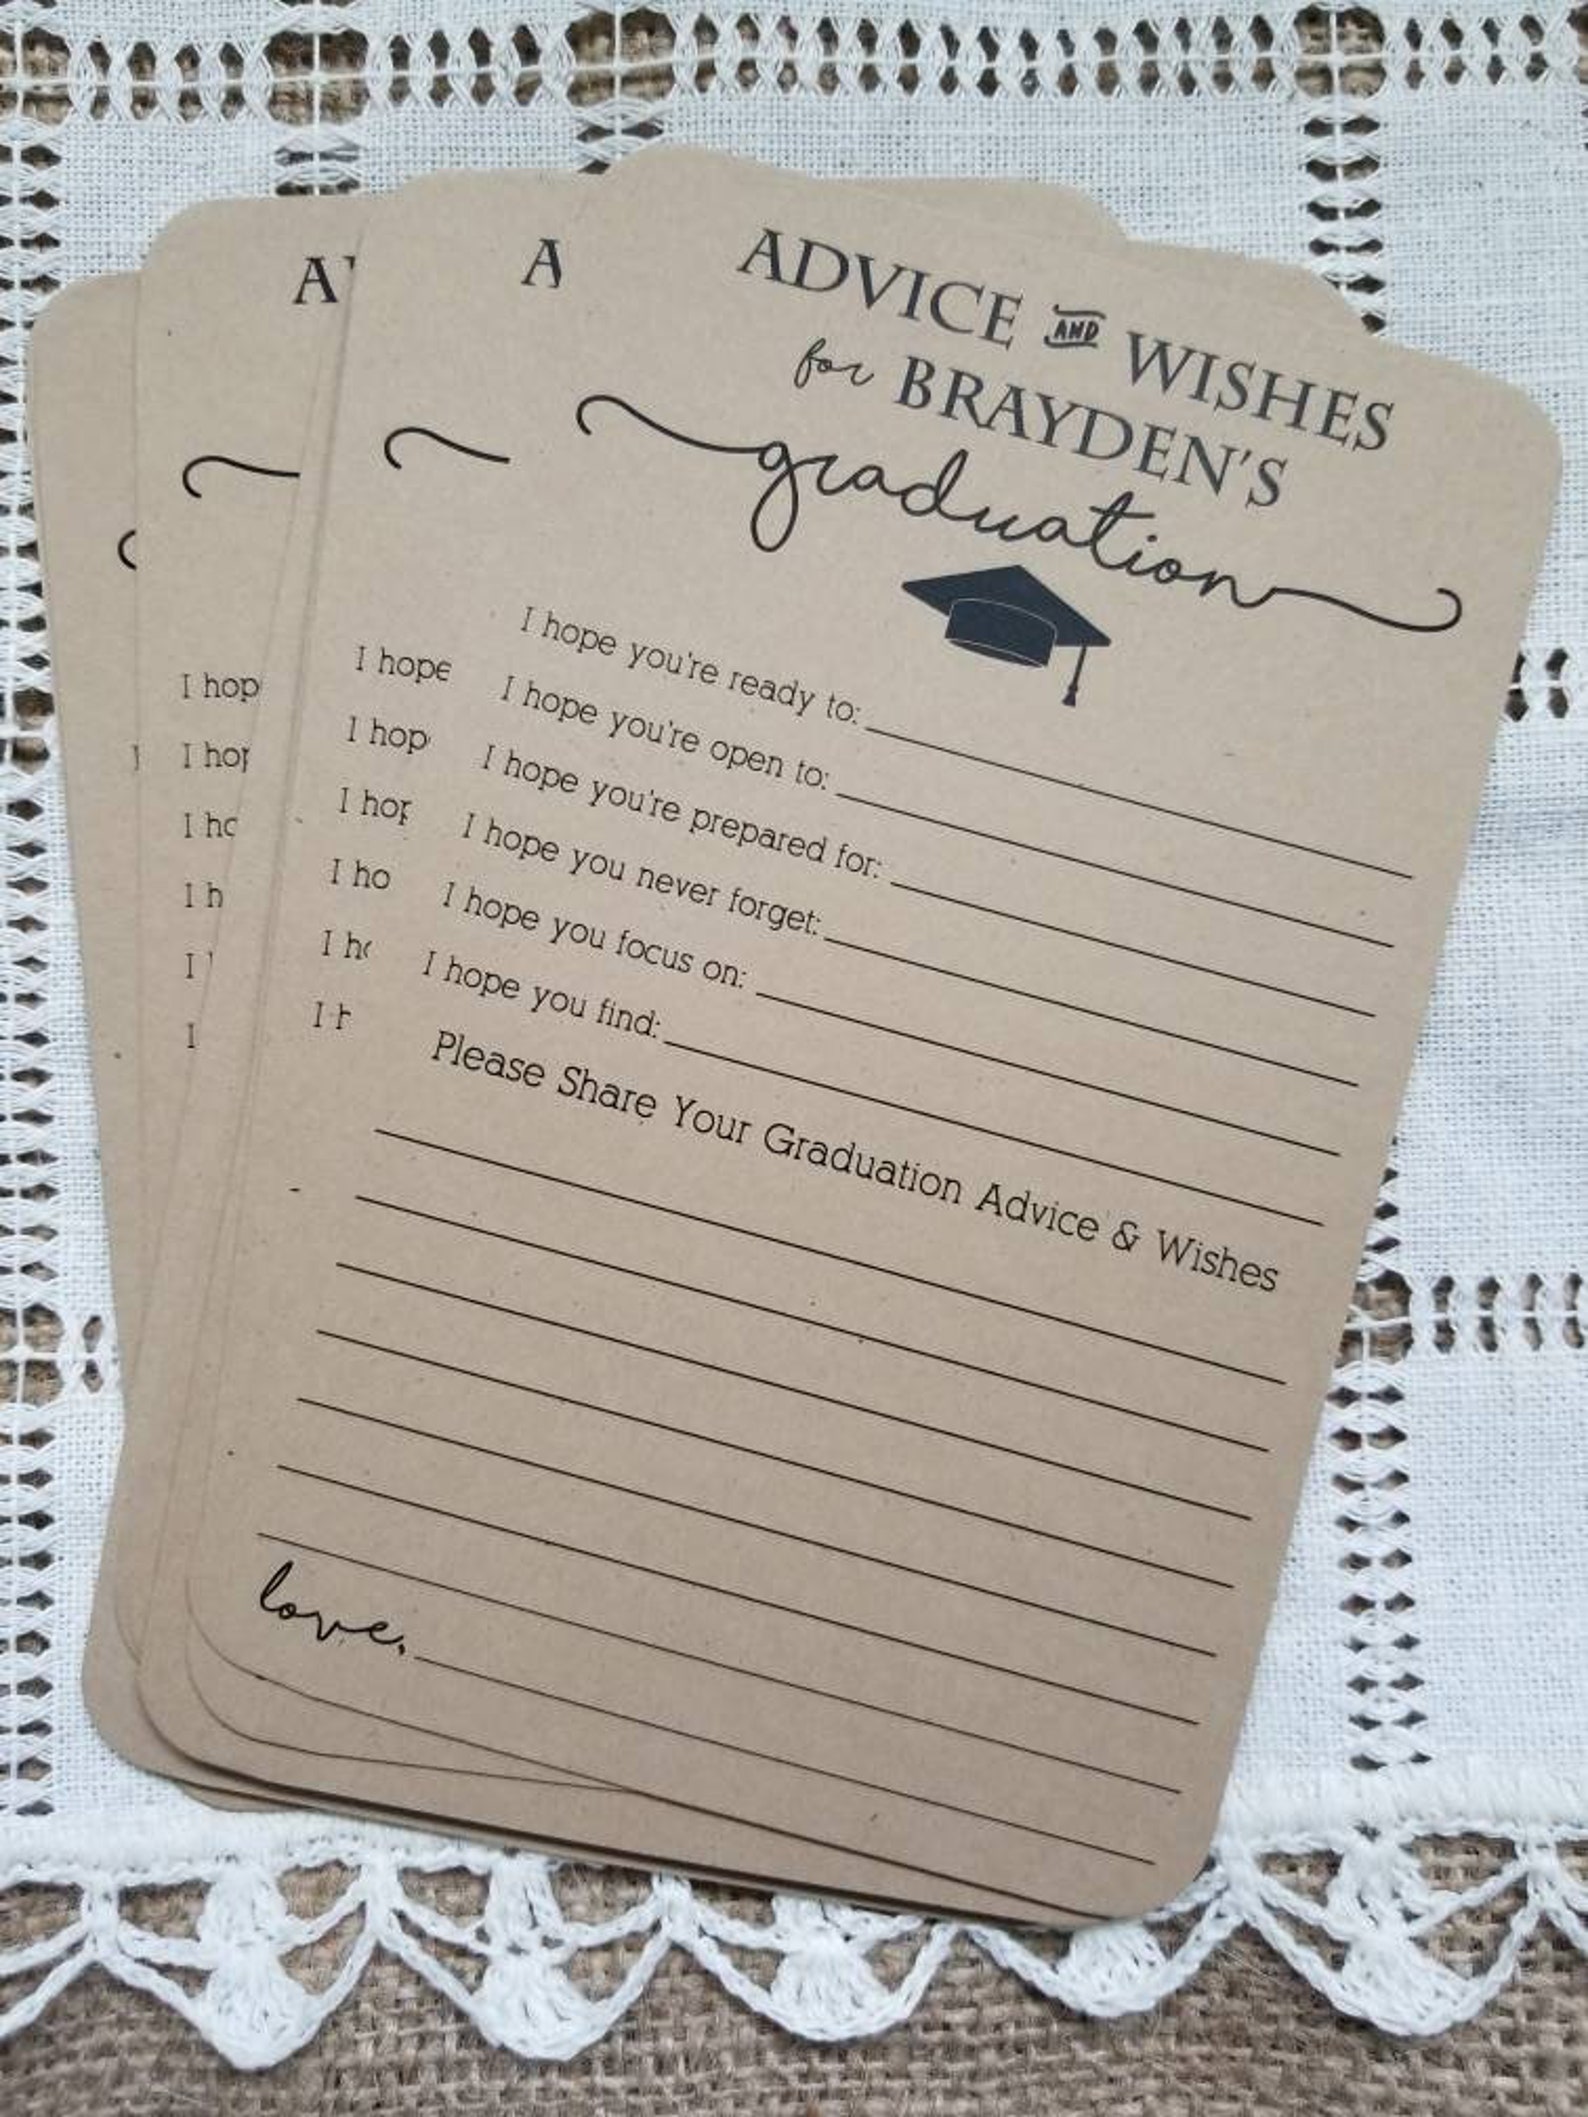 ADVICE AND WISHES
for BRAYDEN'S
graduation
I hope you're ready to:
I hope you're open to:
I hope you're prepared for:
I hope you never forget:
I hope you focus on:
I hope you find:
Please Share Your Graduation Advice & Wishes
love,
A
I hope
I hop
I ho
I
A
I hop
I